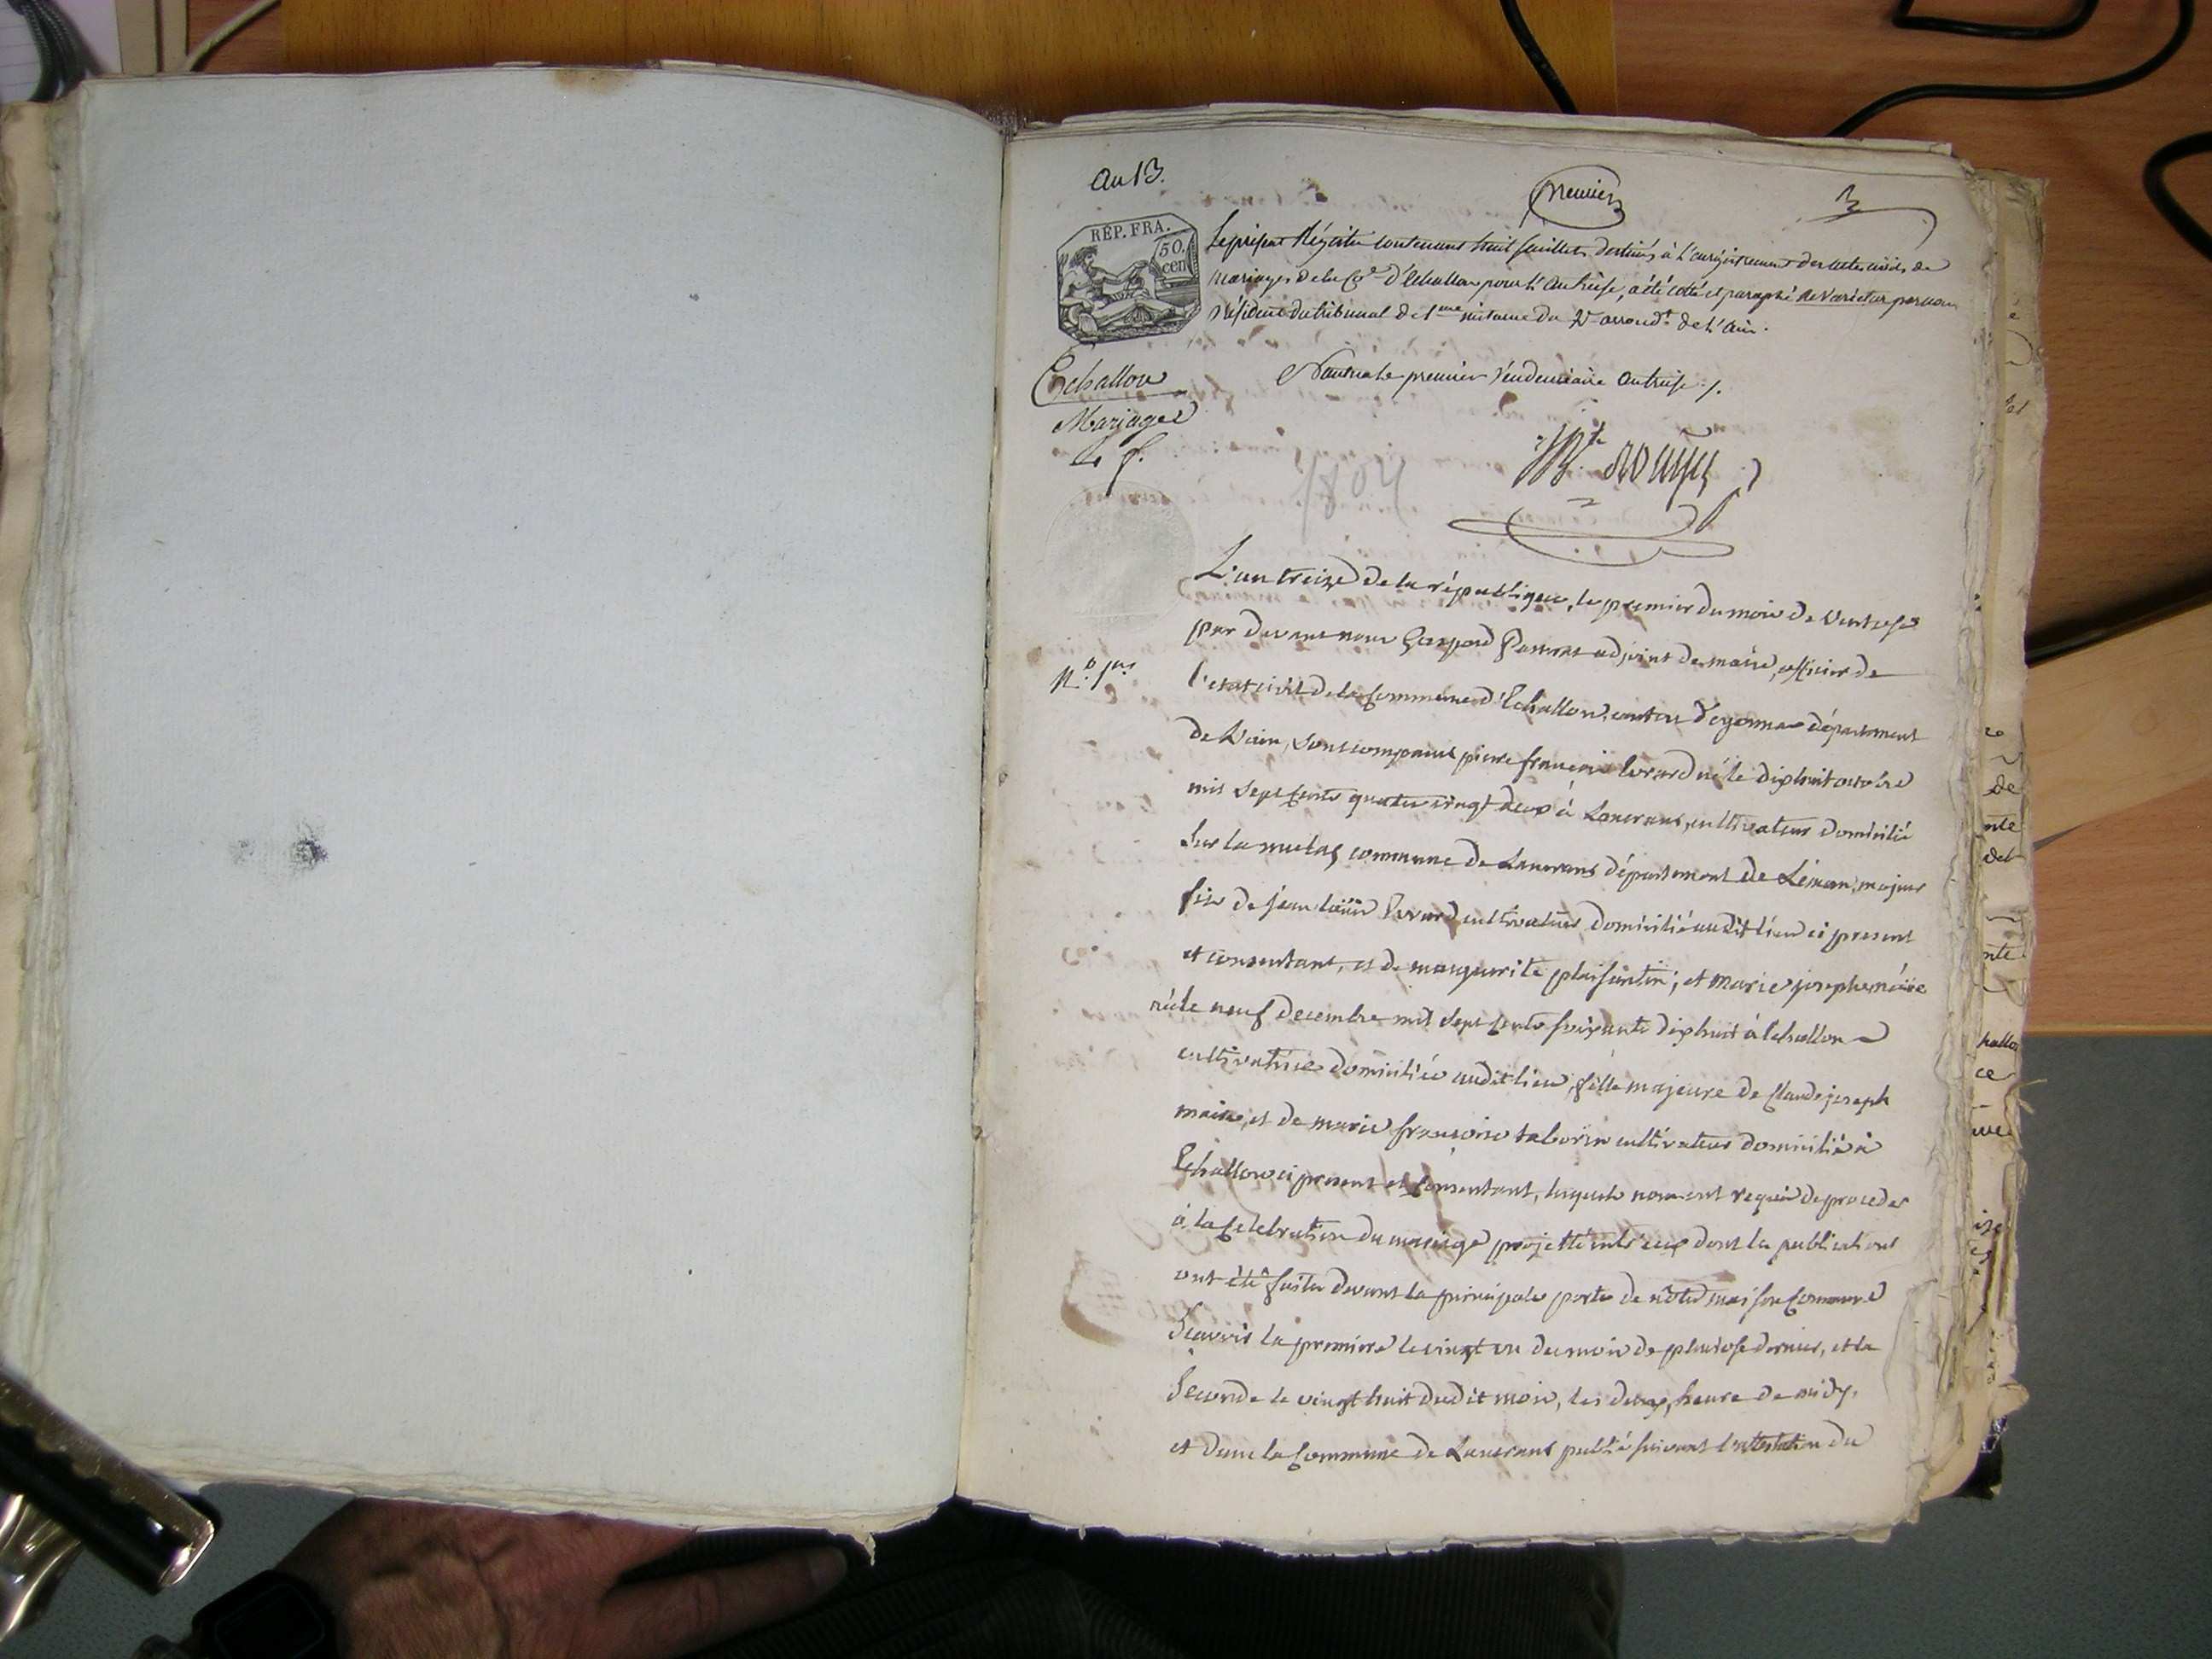 an 13.
premier
RÉP. FRA.
50.
cen
Le présent Régistre contenant huit feuillets destinés à l'enrégistrement des actes civils de
mariages de la Cne d'Echallon pour l'an treize, a été cotté et paraphé ne varietur par nous
Président du tribunal de 1ere instance du arrondt de l'ain.
Nantua le premier Vendemiaire an treize ./.
Echallon
Mariages
1804
L'an treize de la république, le premier du mois de Ventose
par devant nous Gaspard Passerat adjoint de maire, officier de
N.o 1er
l'etat civil de la Commune d'Echallon, canton d'oyonnax département
de l'ain, sont comparus pierre françois Evrard né le dixhuit octobre
mil sept cents quatre vingt deux à Lancrans, cultivateur domicilié
Sur la commune de Lancrans département de Léman, majeur
fils de jean Evrard cultivateur domicilié audit lieu ci present
et consentant, et de marguerite plaisantin; et marie josephe maire
née le neuf decembre mil sept cents soixante dixhuit à Echallon
cultivatrice domiciliée audit lieu, fille majeure de Claude joseph
maire, et de marie françoise taborin cultivateur domicilié à
Echallon ci present et consentant, lesquels nous ont requis de proceder
à la Celebration du mariage projetté entr'eux dont la publications
ont été faites devant la principale porte de nôtre maison Commune
Sçavoir la premiere le vingt un du mois de pluviose dernier, et la
Seconde le vingt huit dudit mois, les deux, heure de midy,
et dans la Commune de Lancrans publié suivant l'attestation du